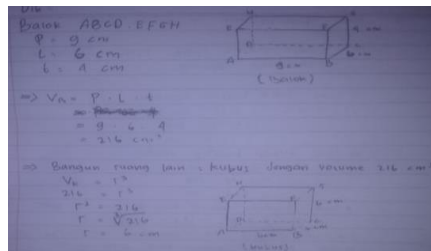 Dik
Balok ABCD.EFGH
P = 9 cm
l = 6 cm
t = 4 cm
H
E F 4 cm
D 6 cm
A 9 cm B
(Balok)
=> VB = P . l . t
= 9 . 6 . 4
= 216 cm³
=> Bangun ruang lain : kubus dengan volume 216 cm
Vk = r³
216 = r³
r³ = 216
r = ³√216
r = 6 cm
H
E F 6 cm
A 6cm B
(kubus)